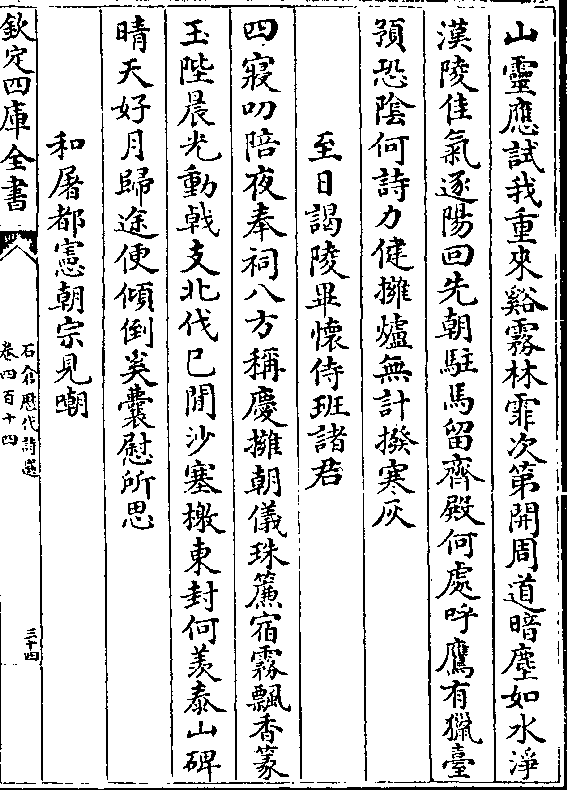 山靈應試我重來谿霧林霏次第開周道暗塵如水淨
漢陵佳氣逐陽回先朝駐馬留齊殿何處呼鷹有獵臺
預恐陰何詩力健擁爐無計撥寒灰
至日謁陵畢懷侍班諸君
四寢叨陪夜奉祠八方稱慶擁朝儀珠簾宿霧飄香篆
玉陛晨光動㦸支北伐已閒沙塞檄東封何羡泰山碑
晴天好月歸途便傾倒奚囊慰所思
和屠都憲朝宗見嘲
欽定四庫全書
石倉歷代詩選
卷四百十四
三十四